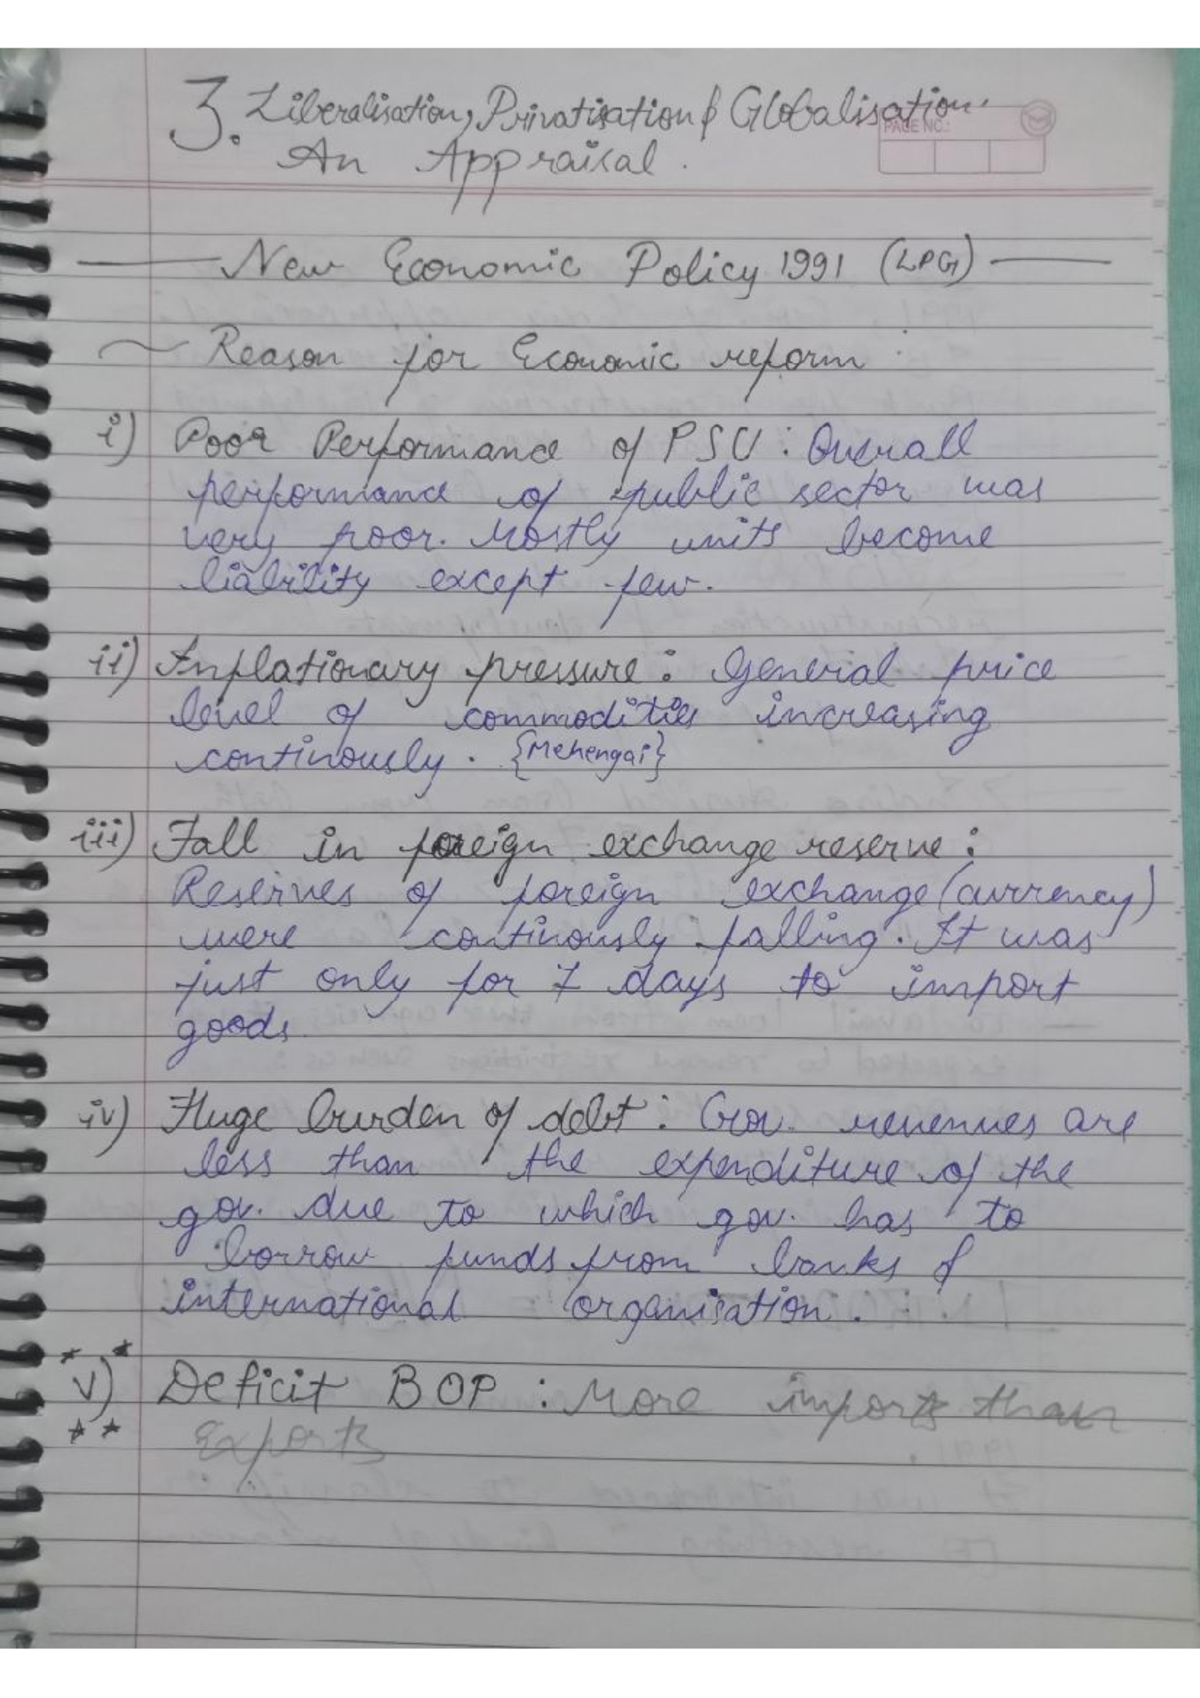 3. Liberalisation, Privatisation & Globalisation.
PAGE NO.:
An Appraisal.
New Economic Policy 1991 (LPG)
Reason for Economic reform :
i) Poor Performance of PSU : Overall
performance of public sector was
very poor. Mostly units become
liability except few.
ii) Inflationary pressure : General price
level of commodities increasing
continously. {Mehengai}
iii) Fall in foreign exchange reserve :
Reserves of foreign exchange (currency)
were continously falling. It was
just only for 7 days to import
goods.
iv) Huge burden of debt : Gov. revenues are
less than the expenditure of the
gov. due to which gov. has to
borrow funds from banks &
international organisation.
v) Deficit BOP : More imports than
Exports